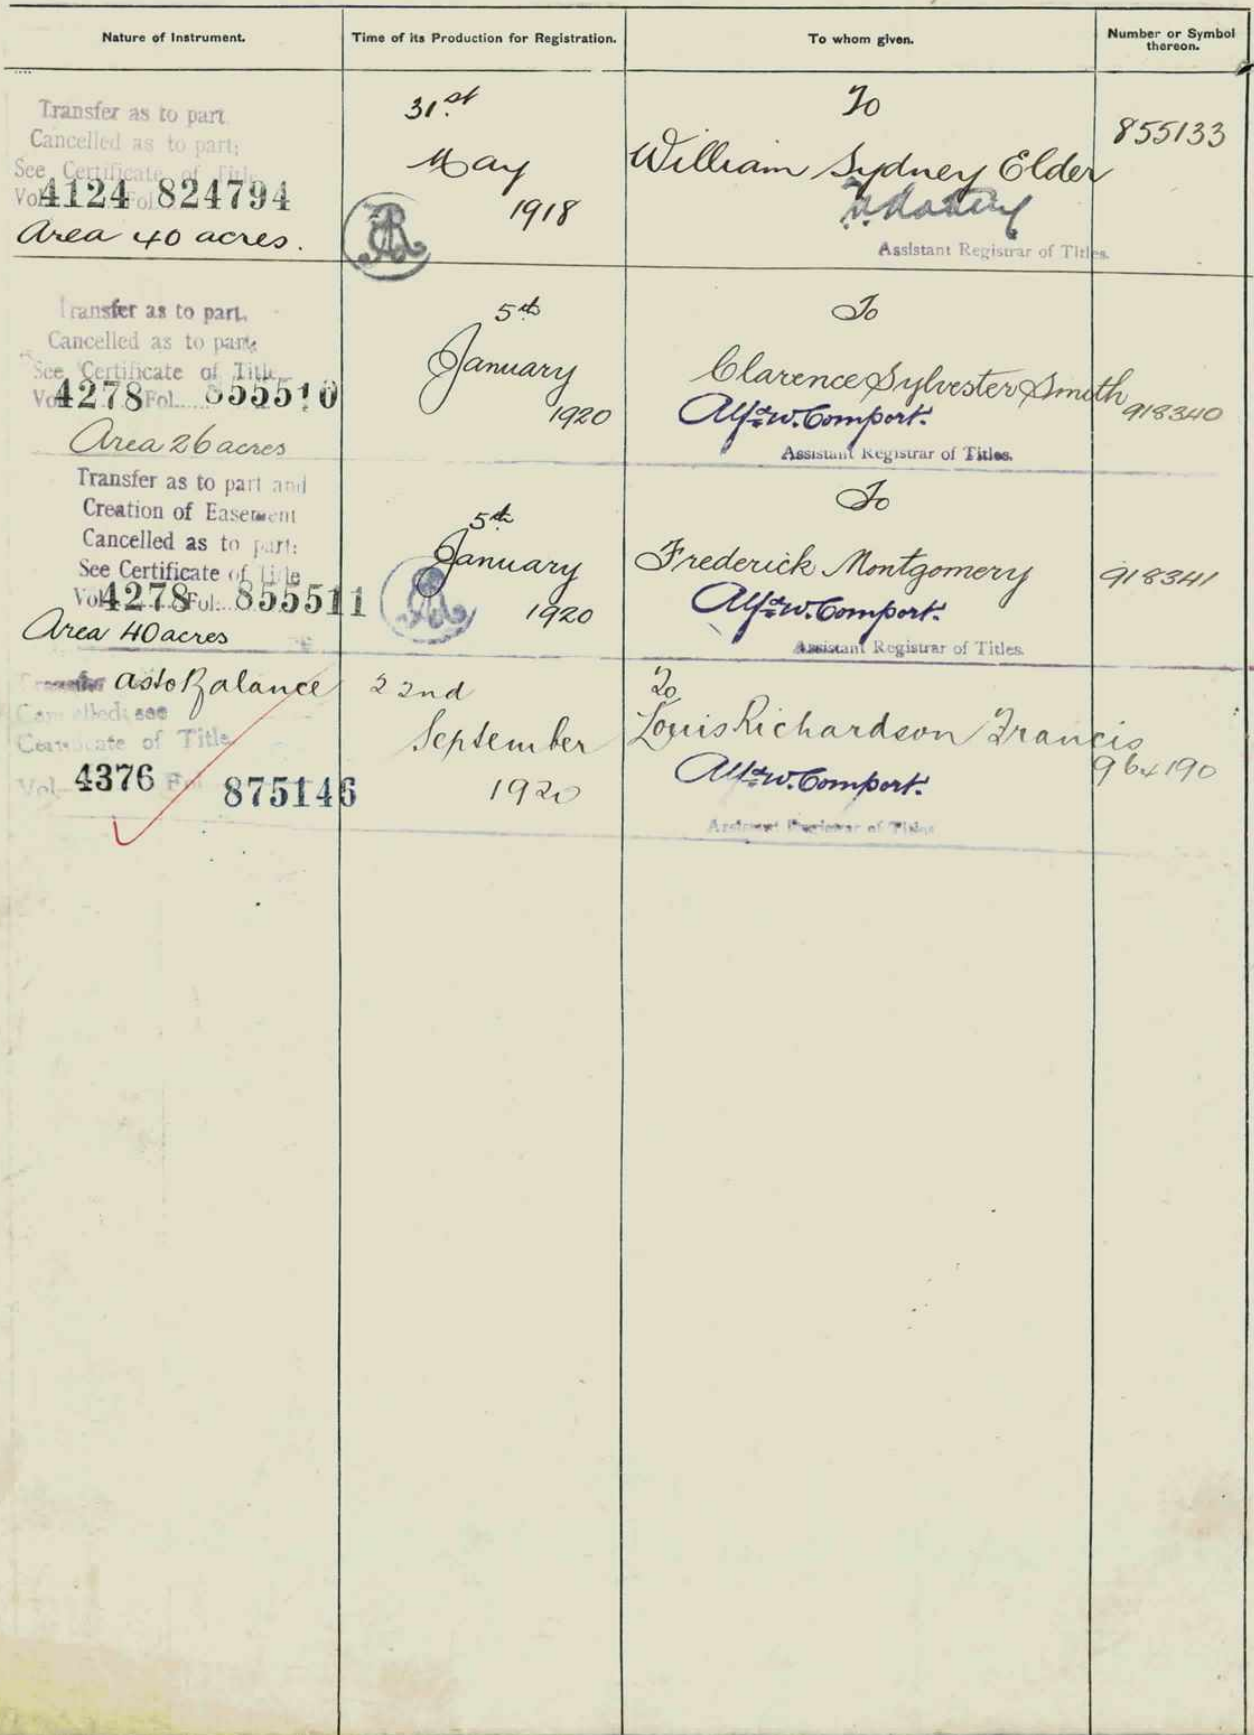 Nature of Instrument.
Time of its Production for Registration.
To whom given.
Number or Symbol
thereon.
Transfer as to part
Cancelled as to part:
See Certificate of Title
Vol 4124 Fol 824794
Area 40 acres.
31st
May
1918
To
William Sydney Elder
Assistant Registrar of Titles.
855133
Transfer as to part.
Cancelled as to part:
See Certificate of Title
Vol 4278 Fol. 855510
Area 26 acres
5th
January
1920
To
Clarence Sylvester Smith
Alfd. W. Comport.
Assistant Registrar of Titles.
918340
Transfer as to part and
Creation of Easement
Cancelled as to part:
See Certificate of Title
Vol 4278 Fol. 855511
Area 40 acres
5th
January
1920
To
Frederick Montgomery
Alfd. W. Comport.
Assistant Registrar of Titles.
918341
Transfer as to Balance
Cancelled: see
Certificate of Title
Vol 4376 Fol 875146
22nd
September
1920
To
Louis Richardson Francis
Alfd. W. Comport.
Assistant Registrar of Titles